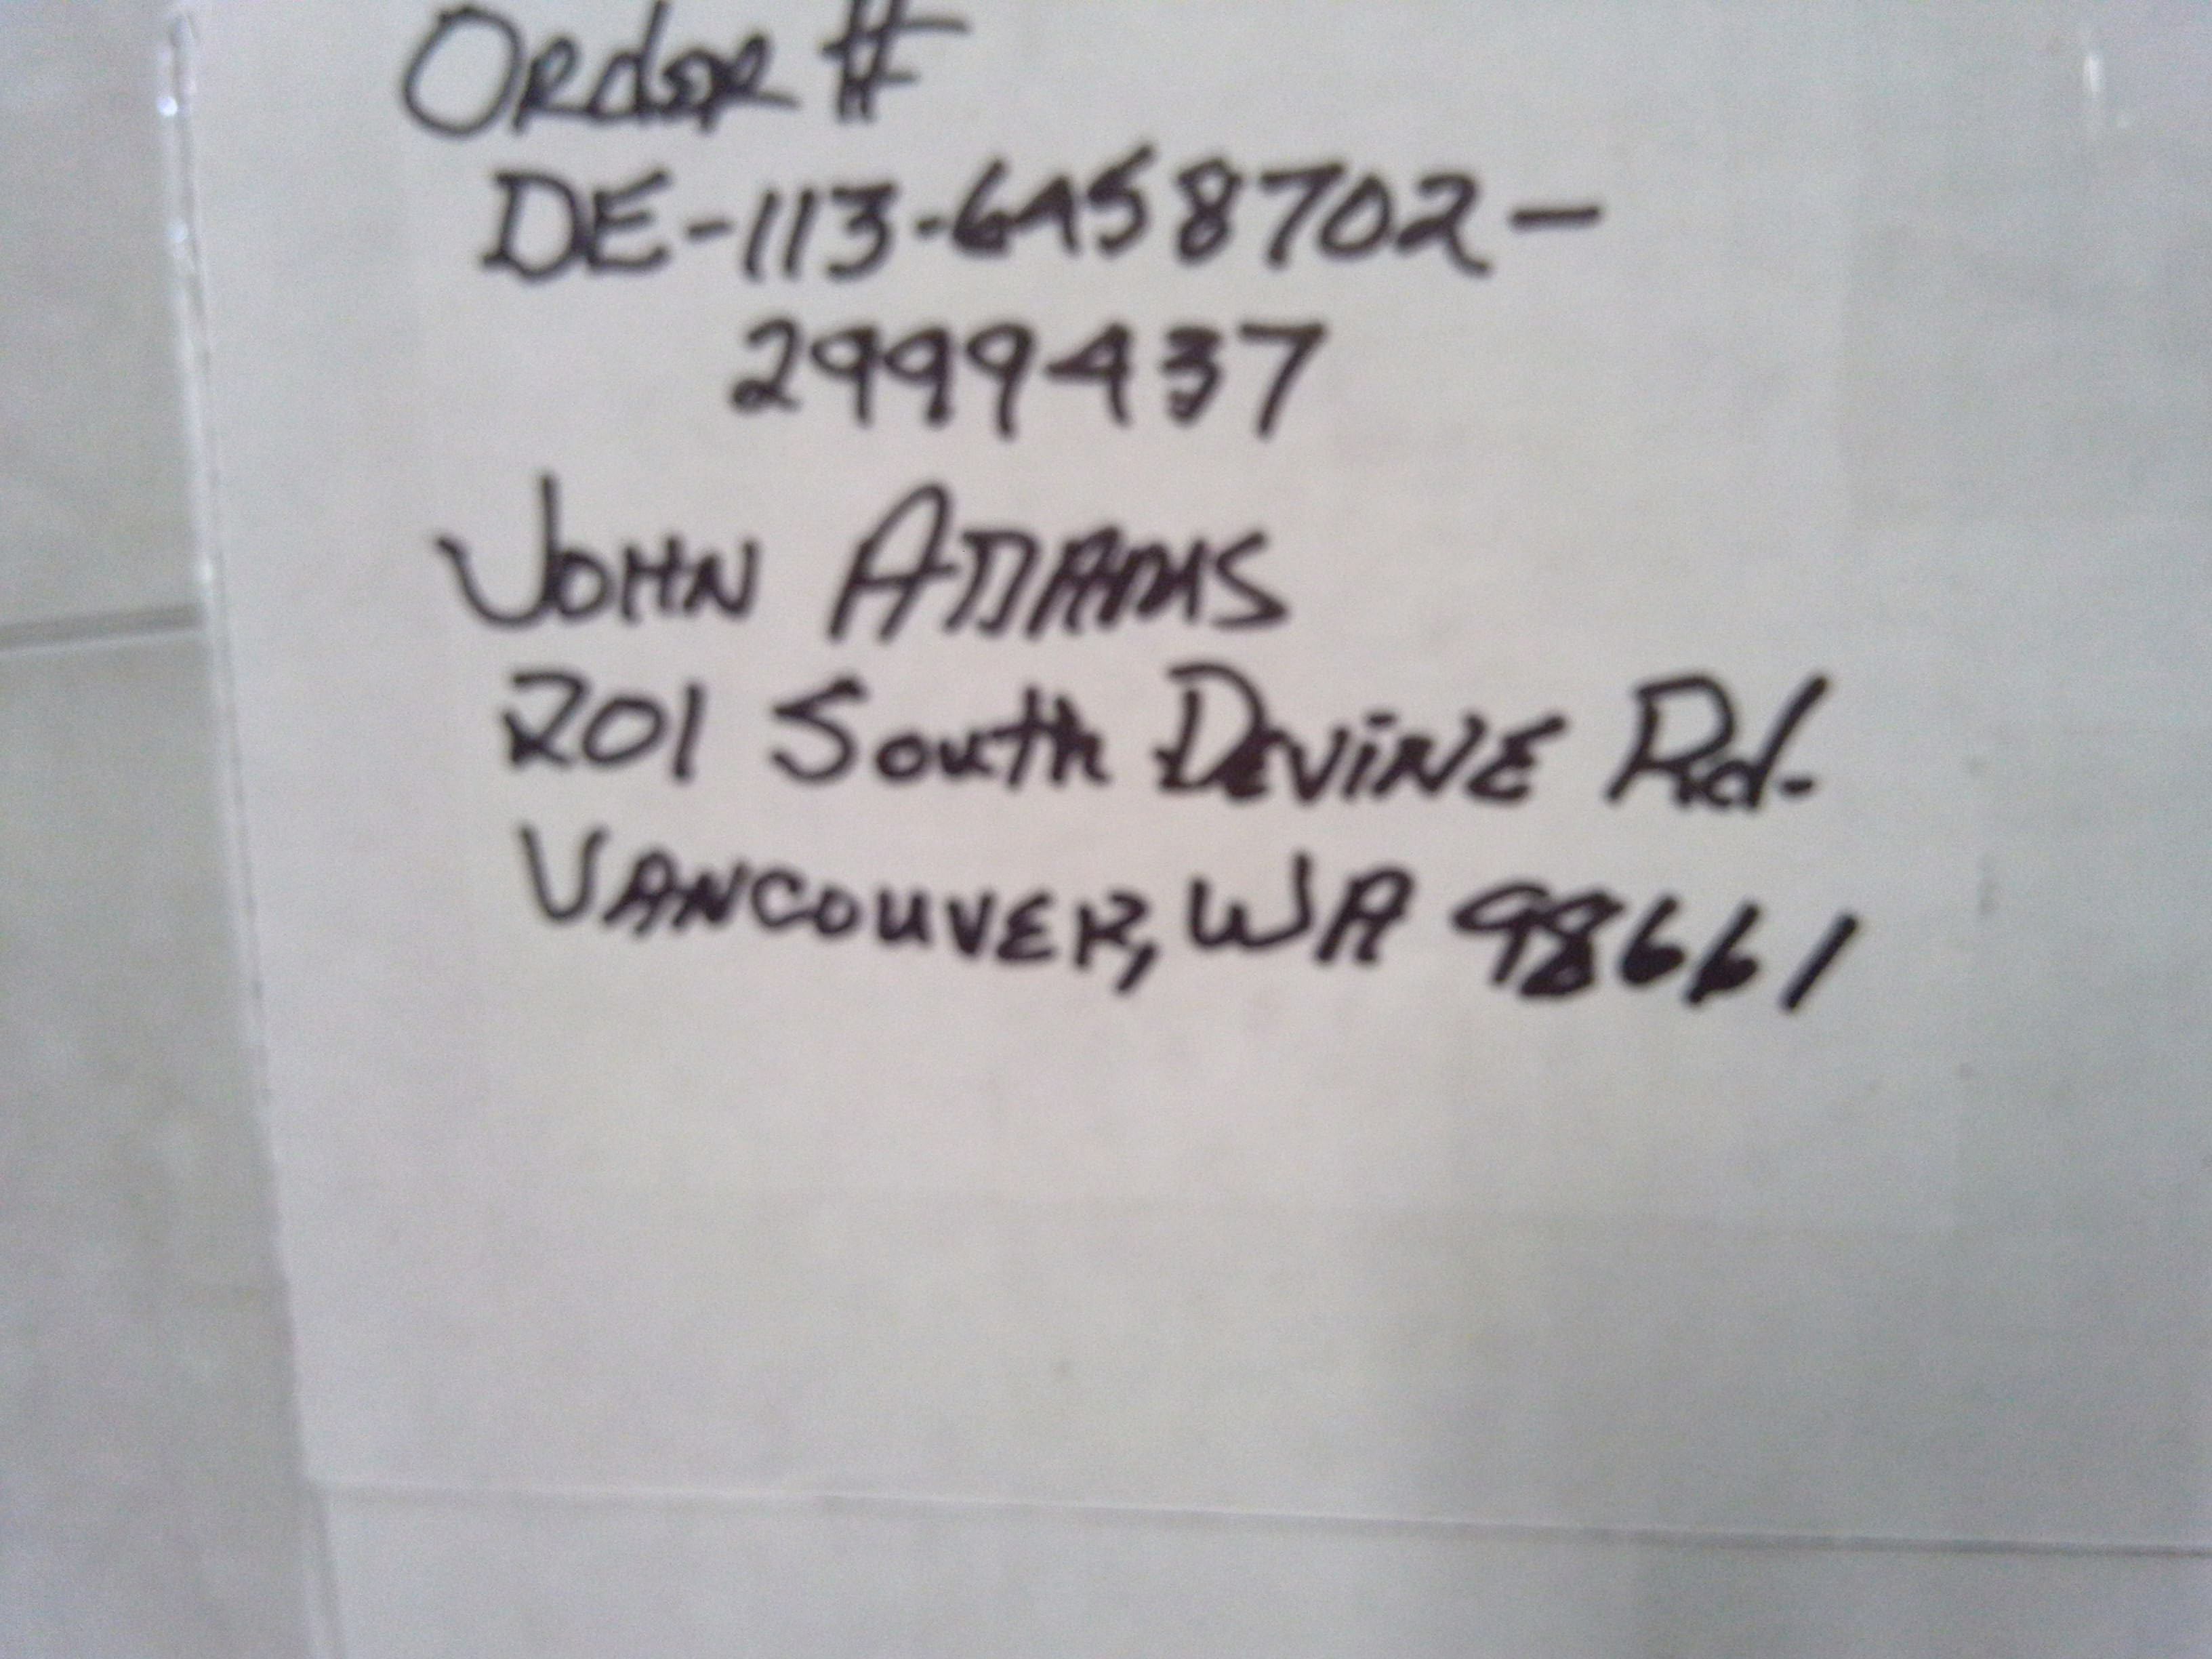 Order #
DE-113-6458702-
2999437
JOHN ADAMS
201 South DEViNE Rd.
VANCOUVER, WA 98661